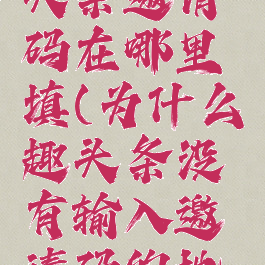 头条邀请
码在哪里
填(为什么
趣头条没
有输入邀
请码的地